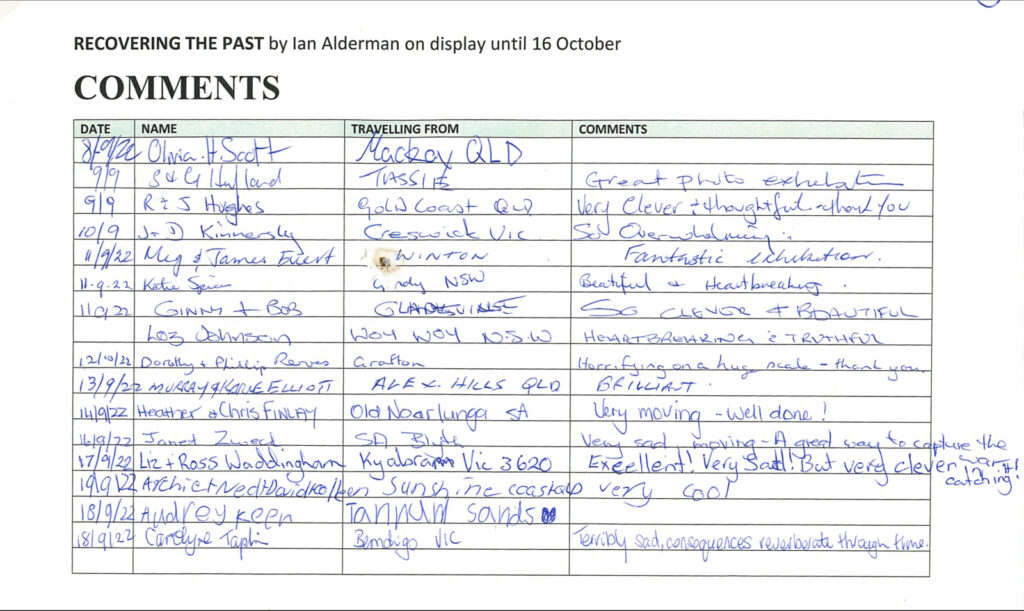 RECOVERING THE PAST by Ian Alderman on display until 16 October
COMMENTS
DATE NAME TRAVELLING FROM COMMENTS
8/9/22 Olivia.H.Scott Mackay QLD
9/9 S & G TASSIE Great photo
9/9 R & J Hughes Gold Coast QLD Very Clever & thoughtful - thank you
10/9 J + D Kinnersly Creswick Vic So
11/9/22 Meg & James WINTON Fantastic exhibition.
11.9.22 Katie NSW Beatiful & Heartbreaking.
11/9/22 GINNY + BOB SO CLEVER & BEAUTIFUL
Loz Johnson WOY WOY N.S.W HEARTBREAKING & TRUTHFUL
12/10/22 Dorothy & Phillip Reeves Grafton Horrifying on a huge scale - thank you
13/9/22 MURRAY & ELLIOTT ALEX. HILLS QLD BRILLIANT.
14/9/22 Heather & Chris FINLAY Old Noarlunga SA Very moving - Well done!
16/9/22 Janet SA Blyth Very sad, moving - A great way to capture the war.
17/9/22 Liz + Ross Waddingham Kyabram Vic 3620 Excellent! Very Sad! But very clever catching it!
19/9/22 Archie + Ned + David Sunshine coast very cool
18/9/22 Audrey Keen Tannum sands
18/9/22 Carolyne Bendigo Vic Terribly sad, consequences reverberate through time.